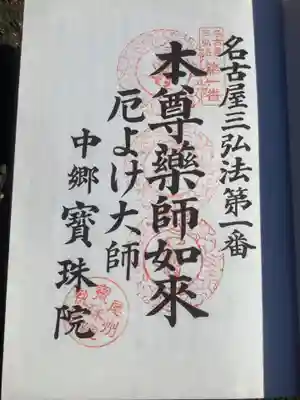 名古屋三弘法第一番
本尊藥師如來
厄よけ大師
中郷 寳珠院
第一番